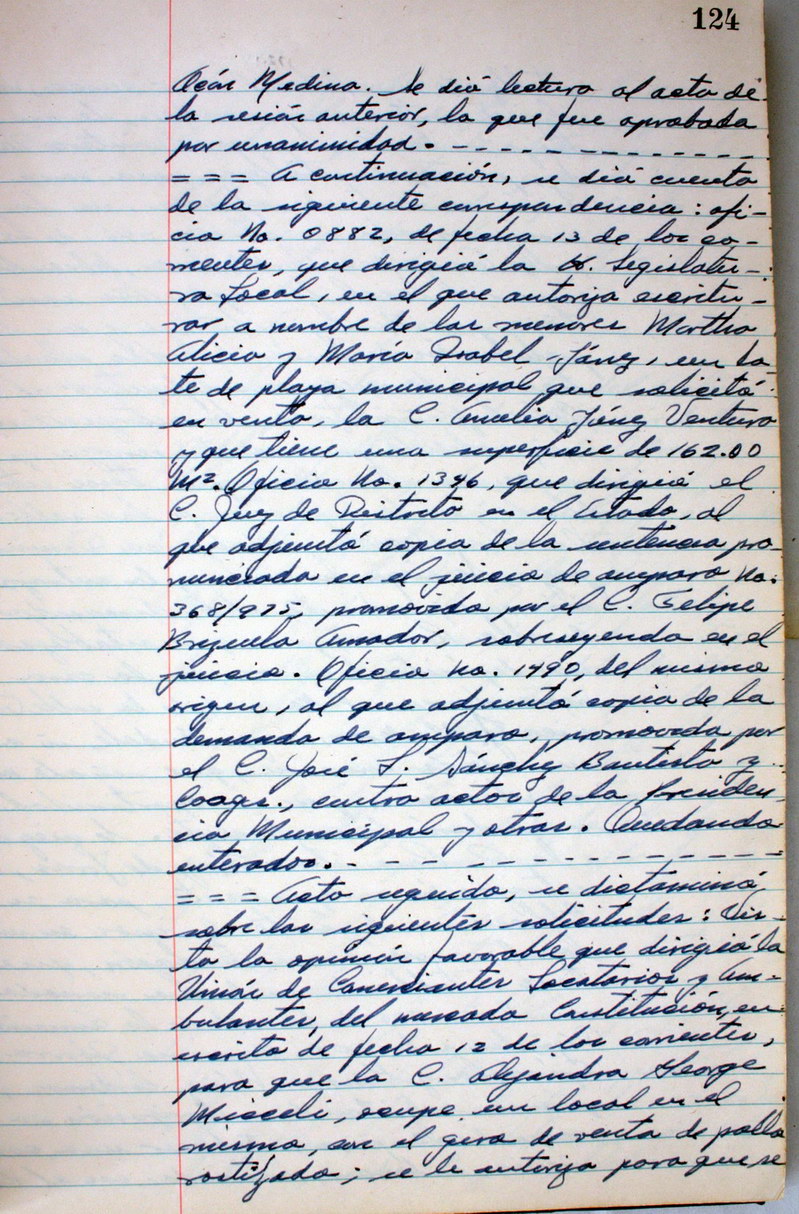 124
Ocón Medina. Se dió lectura al acta de
la sesión anterior, la que fue aprobada
por unanimidad. - - - - - - - - - - - - -
= = = A continuación, se dió cuenta
de la siguiente correspondencia: ofi-
cio No. 0882, de fecha 13 de los co-
rrientes, que dirigió la H. Legislatu-
ra Local, en el que autoriza escritu-
rar a nombre de las menores Martha
Alicia y María Isabel Jánez, un lo
te de playa municipal que solicitó
en venta, la C. Amelia Jánez Ventura
y que tiene una superficie de 162.00
M². Oficio No. 1346, que dirigió el
C. Juez de Distrito en el Estado, al
que adjuntó copia de la sentencia pro-
nunciada en el juicio de amparo No.
368/975, promovido por el C. Felipe
Brizuela Amador, sobreseyendo en el
juicio. Oficio No. 1490, del mismo
origen, al que adjuntó copia de la
demanda de amparo, promovida por
el C. José L. Sánchez Bautista y
Coags., contra actos de la Presiden-
cia Municipal y otras. Quedando
enterados. - - - - - - - - - - - - -
= = = Acto seguido, se dictaminó
sobre las siguientes solicitudes: Vis-
ta la opinión favorable que dirigió la
Unión de Comerciantes Locatarios y Am-
bulantes, del mercado Constitución, en
escrito de fecha 12 de los corrientes,
para que la C. Alejandra George
Micceli, ocupe un local en el
mismo, con el giro de venta de pollo
rostizado; se le autoriza para que se